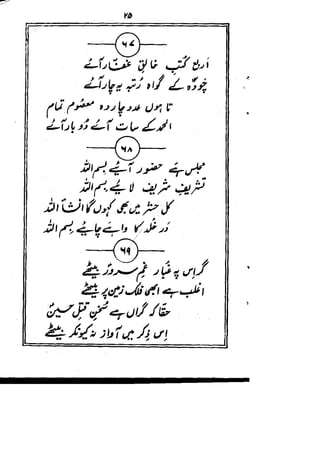 ۲۵
۶۷
اربع کتب خالق غفار آئے
چودہ کے گواہ رتبہ یہ چار آئے
تا ہوں عدد چاردہ معصوم تمام
الحمد کے سات آئے دو بار آئے
۶۸
مجلس ہے حضور آئیے بسم اللہ
تشریف شریف لائیے بسم اللہ
کل حشر میں بھی کہوں گا انشاء اللہ
در خلد کا وا ہے جائیے بسم اللہ
۶۹
گر اس پہ غبار غم سرور بیٹھے
اغلب ہے ابھی فلک زمیں پر بیٹھے
حقا کہ گراں ہے سخن قتل حسین
اس ذکر میں آواز نہ کیونکر بیٹھے